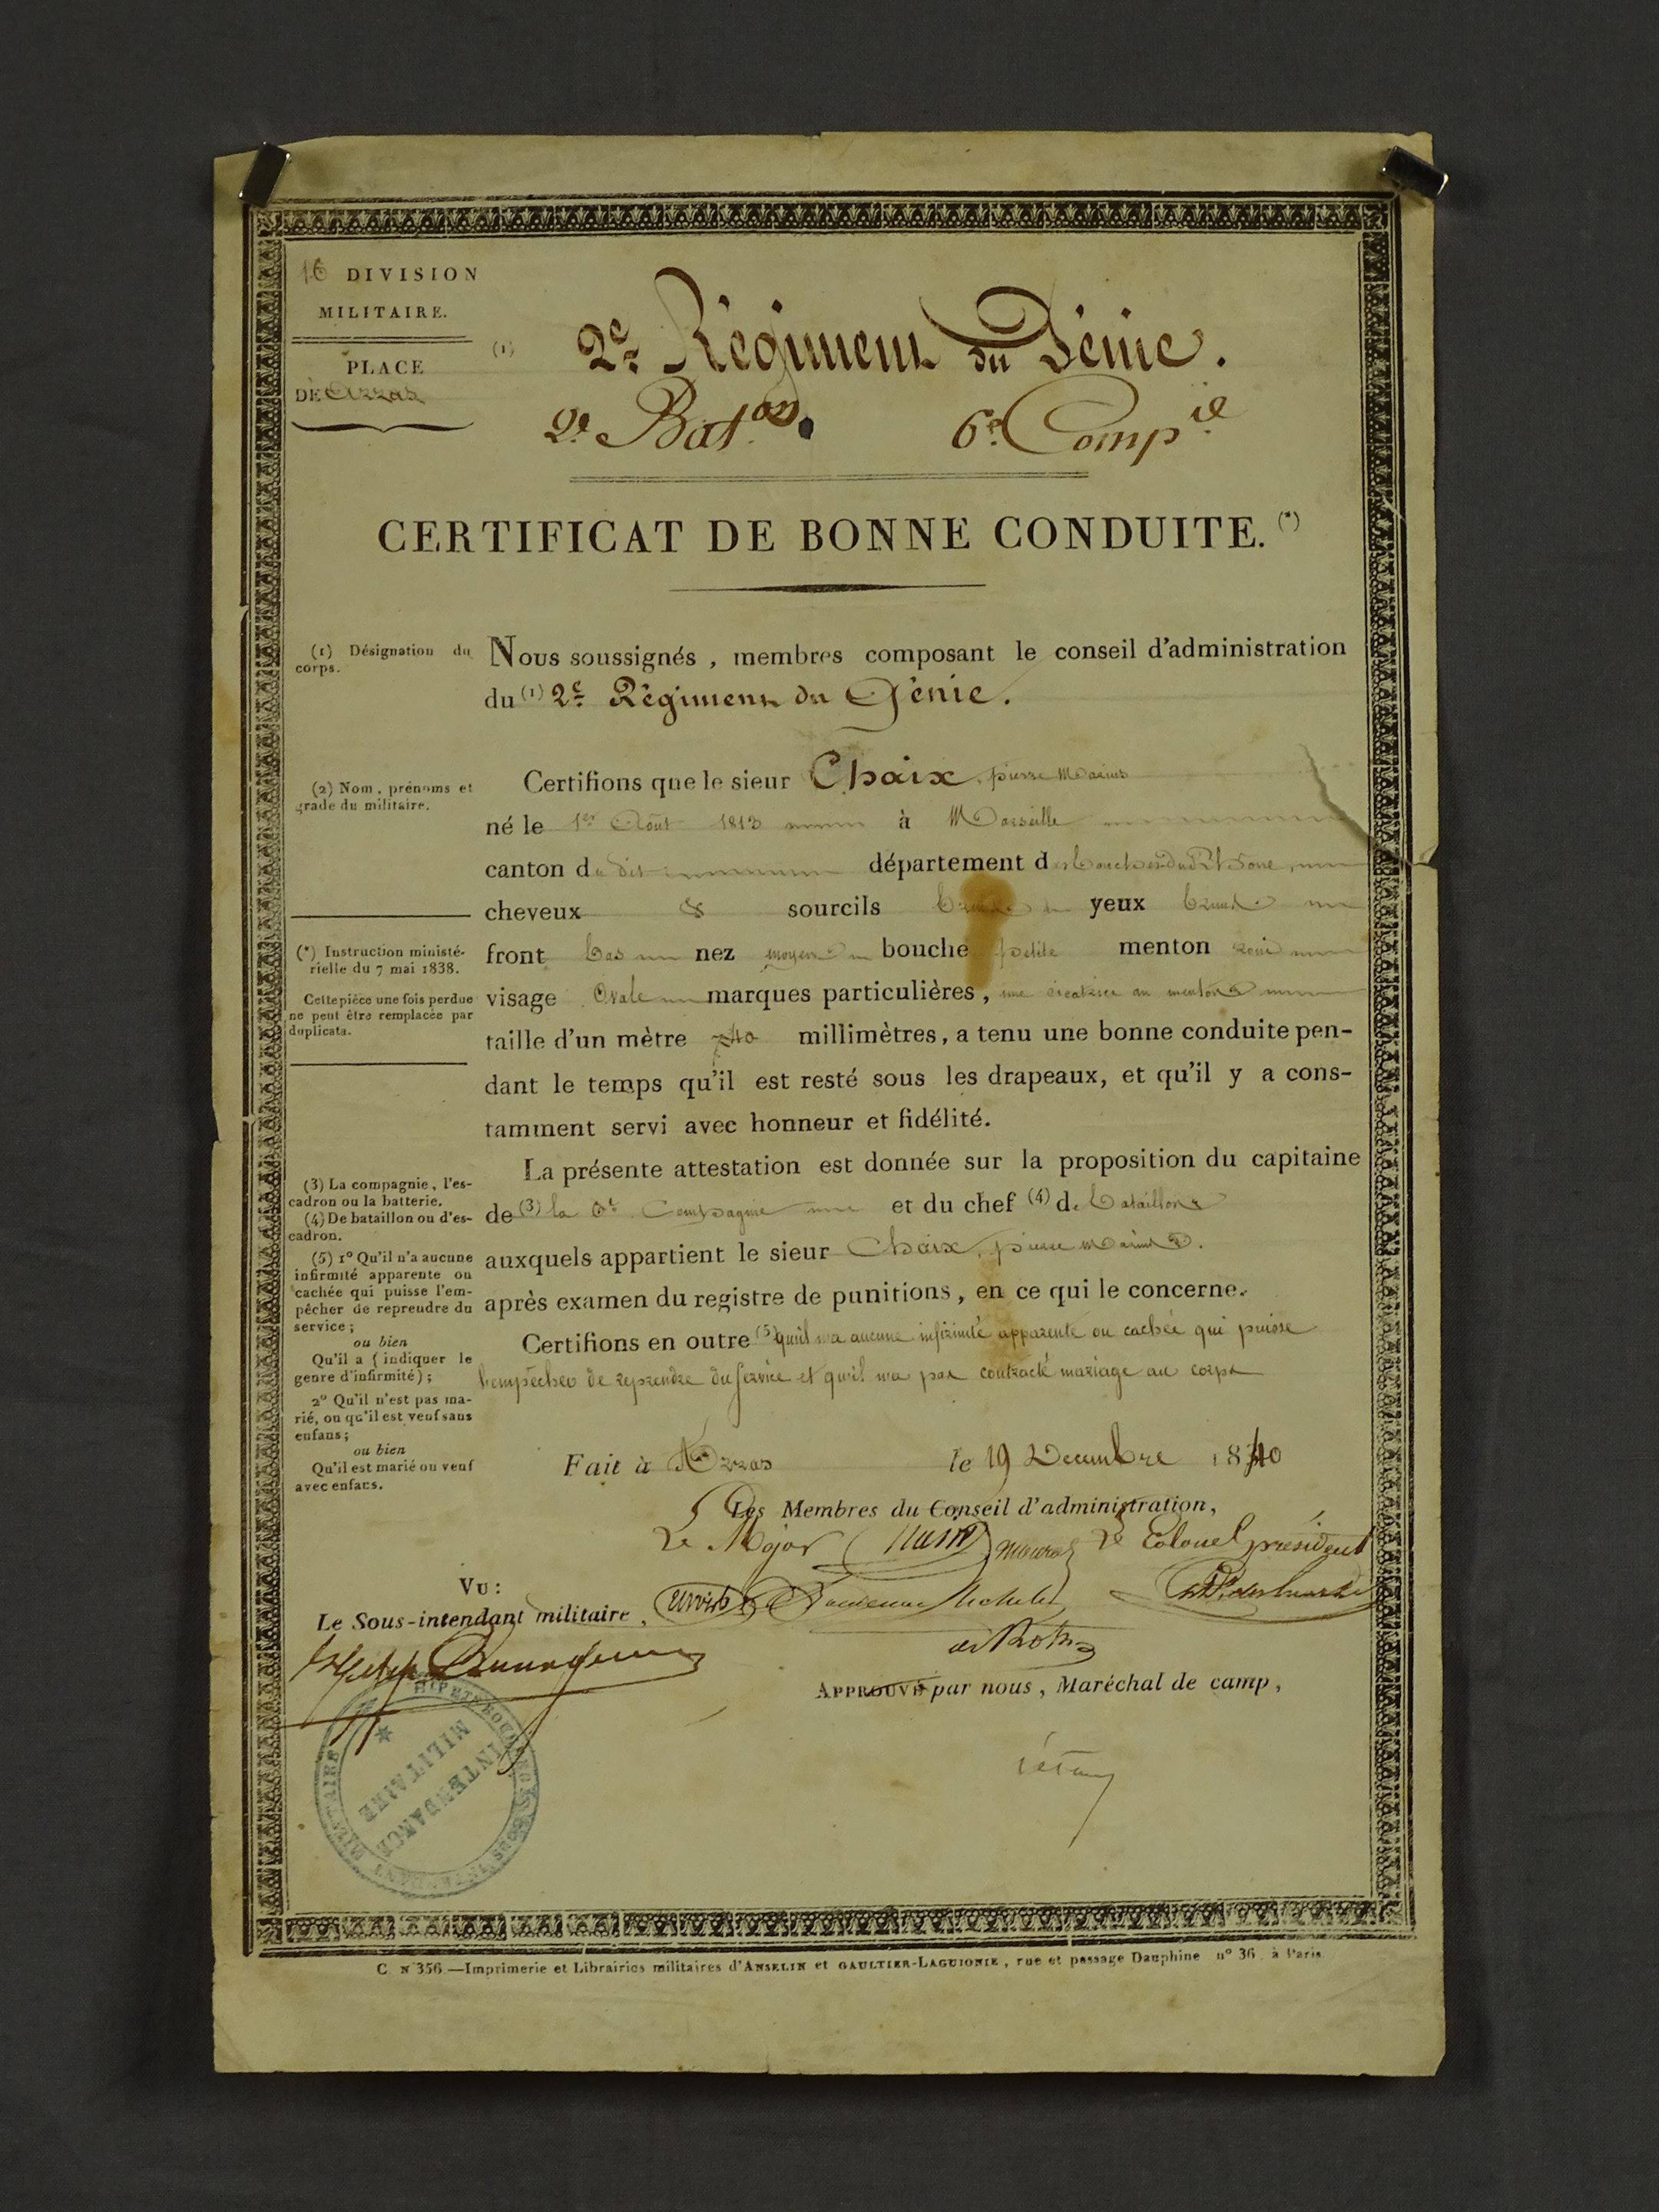 16 DIVISION
MILITAIRE.
PLACE
DE Arras
(1) 2e Régiment du Génie.
2e Baton. 6e Compie
CERTIFICAT DE BONNE CONDUITE. (*)
(1) Désignation du
corps.
Nous soussignés, membres composant le conseil d'administration
du (1) 2e Régiment du Génie.
(2) Nom, prénoms et
grade du militaire.
Certifions que le sieur Chaix, pierre Marius
né le 1er Août 1813 à Marseille
canton du dit département des bouches du Rhône
cheveux & sourcils bruns yeux bruns
(*) Instruction ministé-
rielle du 7 mai 1838.
Cette pièce une fois perdue
ne peut être remplacée par
duplicata.
front bas nez moyen bouche petite menton rond
visage Ovale marques particulières, une cicatrice au menton
taille d'un mètre 740 millimètres, a tenu une bonne conduite pen-
dant le temps qu'il est resté sous les drapeaux, et qu'il y a cons-
tamment servi avec honneur et fidélité.
La présente attestation est donnée sur la proposition du capitaine
de (3) la 6e Compagnie et du chef (4) de bataillon
auxquels appartient le sieur Chaix, pierre Marius.
après examen du registre de punitions, en ce qui le concerne.
Certifions en outre (5) qu'il n'a aucune infirmité apparente ou cachée qui puisse
l'empêcher de reprendre du service et qu'il n'a pas contracté mariage au corps
(3) La compagnie, l'es-
cadron ou la batterie.
(4) De bataillon ou d'es-
cadron.
(5) 1º Qu'il n'a aucune
infirmité apparente ou
cachée qui puisse l'em-
pêcher de reprendre du
service;
ou bien
Qu'il a (indiquer le
genre d'infirmité);
2º Qu'il n'est pas ma-
rié, ou qu'il est veuf sans
enfans;
ou bien
Qu'il est marié ou veuf
avec enfans.
Fait à Arras le 19 Decembre 1840
Les Membres du Conseil d'administration,
Le Major Le Colonel président
VU:
Le Sous-intendant militaire,
APPROUVÉ par nous, Maréchal de camp,
INTENDANCE
MILITAIRE
C. N 356.—Imprimerie et Librairies militaires d'ANSELIN et GAULTIER-LAGUIONIE, rue et passage Dauphine nº 36. à Paris